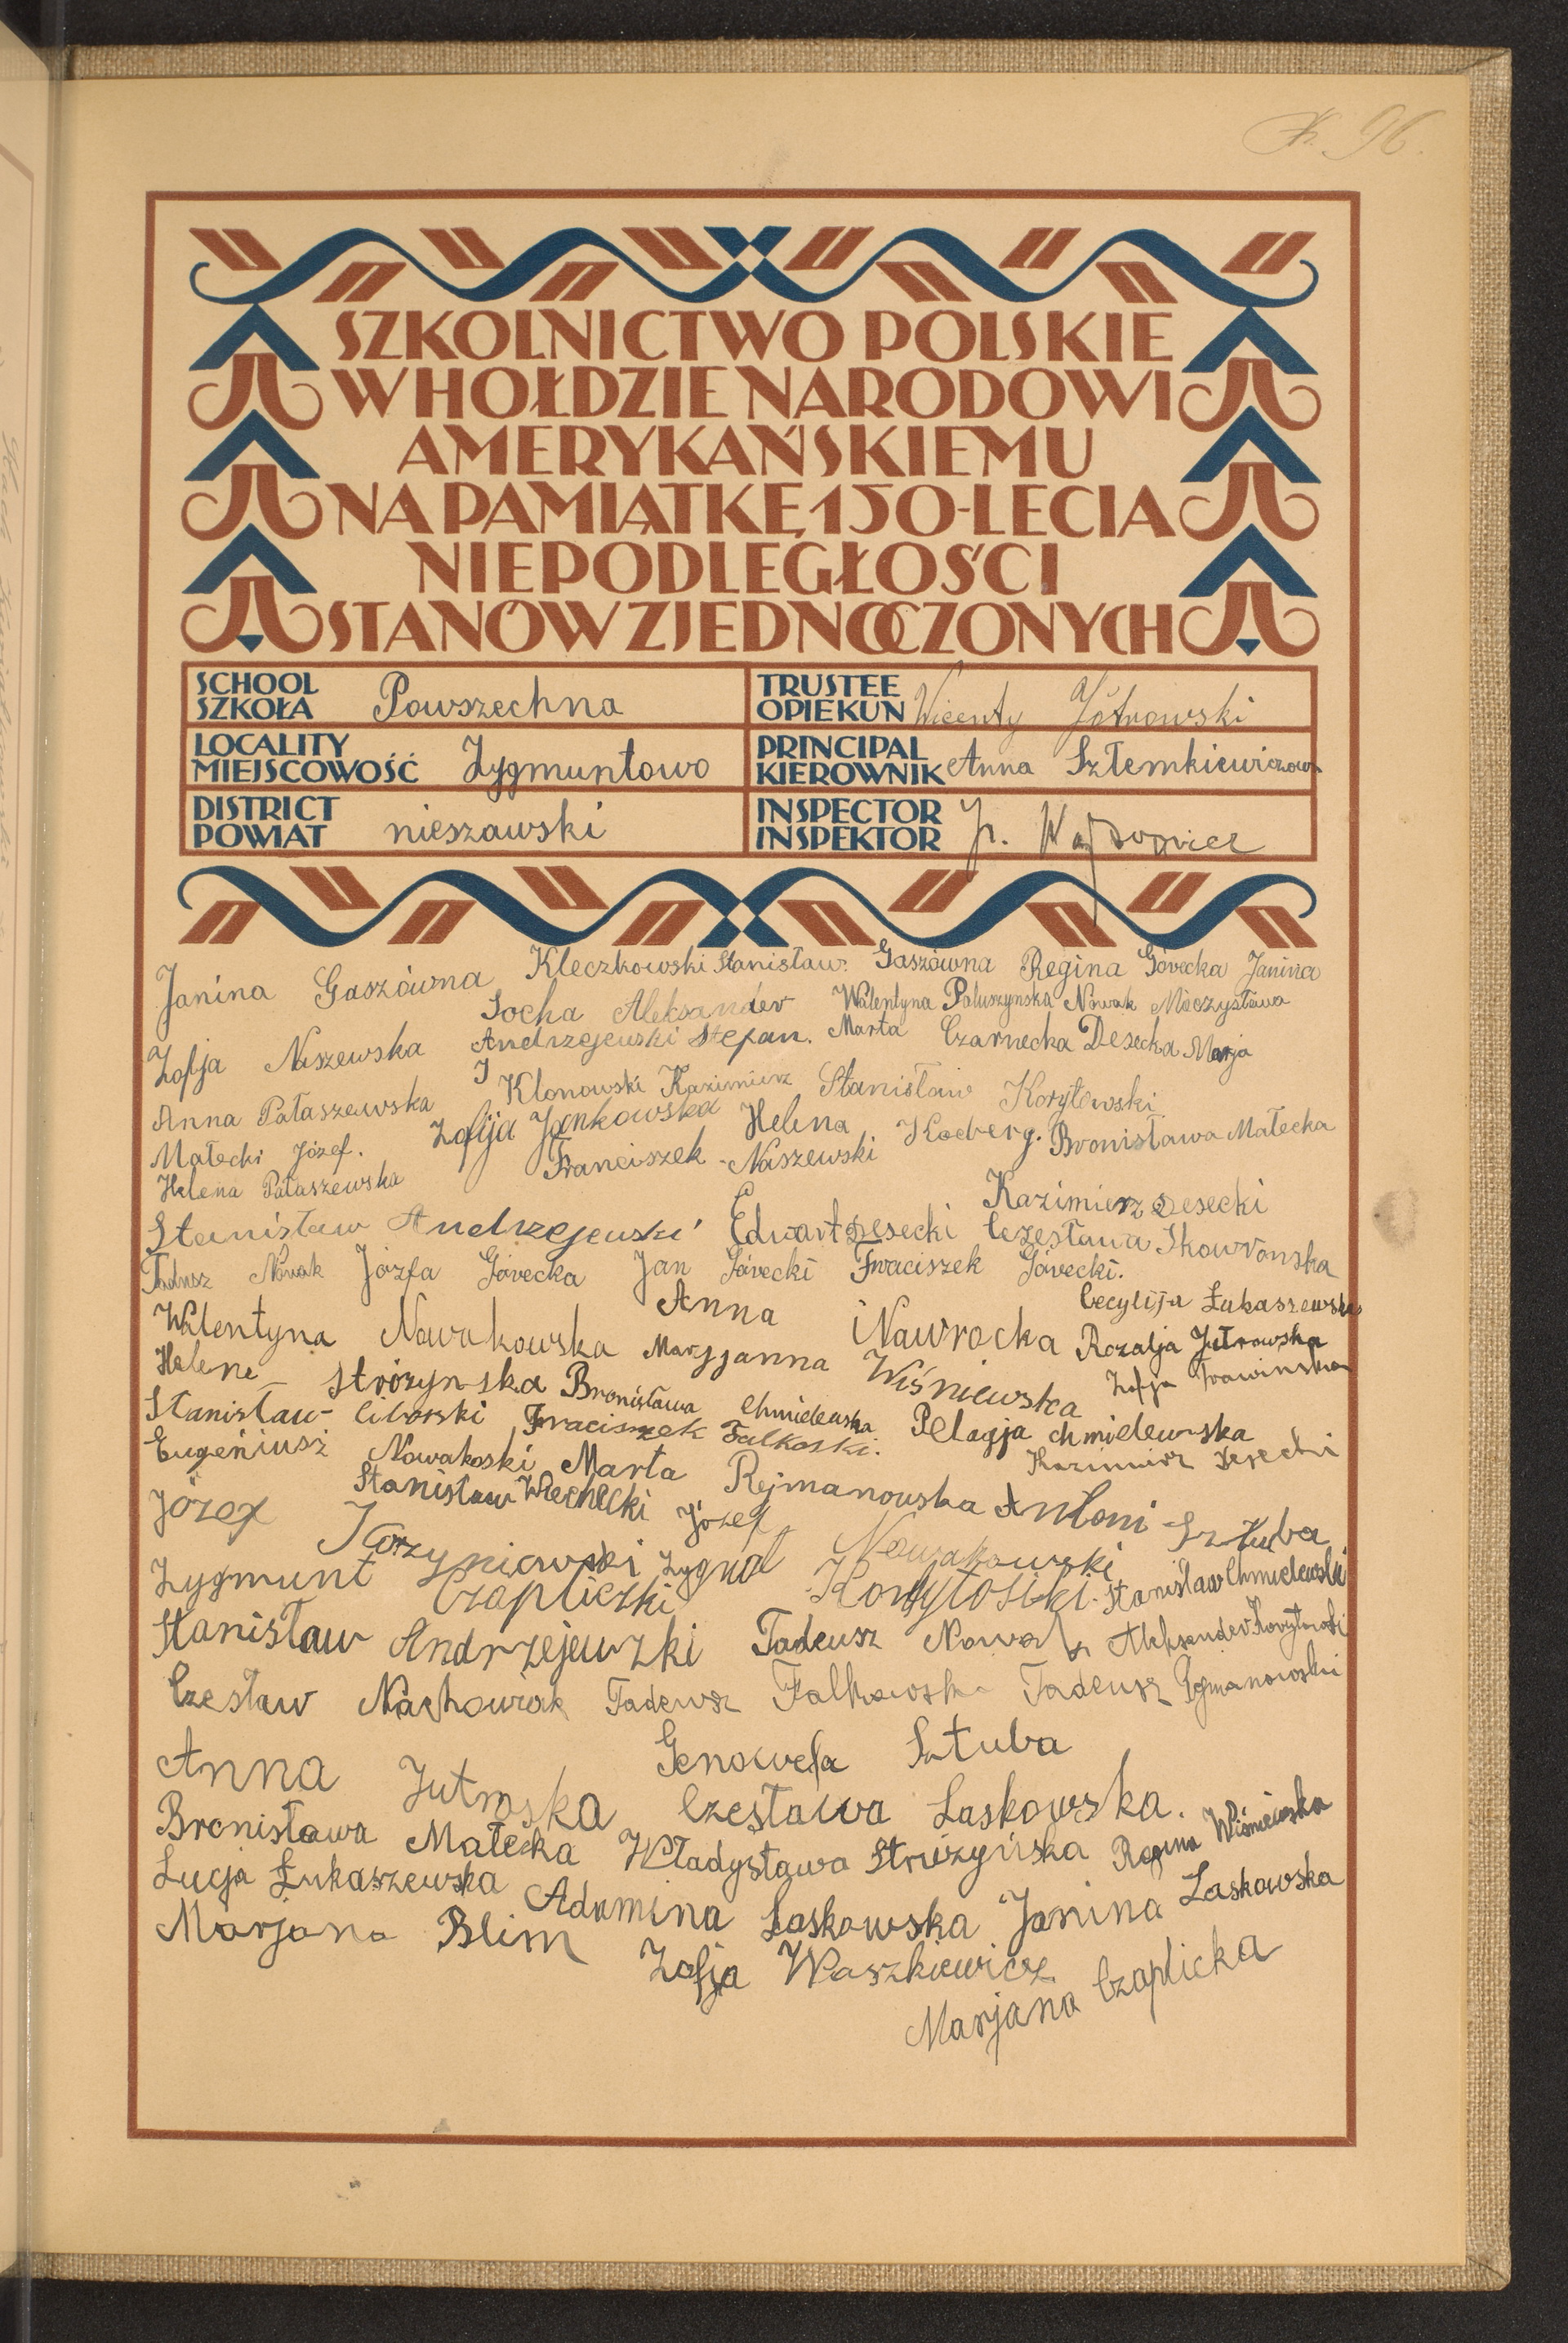 96.
SZKOLNICTWO POLSKIE
W HOŁDZIE NARODOWI
AMERYKAŃSKIEMU
NA PAMIĄTKĘ 150-LECIA
NIEPODLEGŁOŚCI
STANÓW ZJEDNOCZONYCH
SCHOOL
SZKOŁA Powszechna
TRUSTEE
OPIEKUN Wicenty
LOCALITY
MIEJSCOWOŚĆ Zygmuntowo
PRINCIPAL
KIEROWNIK Anna Sztemkiewiczowa
DISTRICT
POWIAT nieszawski
INSPECTOR
INSPEKTOR
Janina Gaszówna Kleczkowski Stanisław Gaszówna Regina Górecka Janina
Socha Aleksander Walentyna Paluszynska Nowak Mieczysława
Zofja Naszewska Andrzejewski Stefan. Marta Czarnecka Desecka Marja
Anna Pataszewska Klonowski Kazimierz Stanisław Korytowski
Małecki Józef. Zofija Jankowska Helena Koeberg. Bronisława Małecka
Helena Pataszewska Franciszek Naszewski
Kazimierz Desecki
Stanisław Andrzejewski Edwart Desecki Czesława Skowronska
Tadusz Nowak Józfa Górecka Jan Górecki Fraciszek Górecki.
Walentyna Nowakowska Anna Nawrocka Cecylija Łukaszewska
Helena Stróżynska Maryjanna Wiśniewska Rozalja Jutrowska
Bronisława Chmielewska Zofja Trawinska
Stanisław Ciborski Fraciszek Falkoski. Pelagja chmielewska
Eugeńiusż Nowakoski Marta Rejmanowska Kazimierz Desecki
Józef Korzyniewski Stanisław Wiechecki Józef Nowakowski Antoni Sztuba
Zygmunt Czapliczki Zygmót Korytoski. Stanisław Chmielewski
Stanisław Andrzejewzki Tadeusz Nowak Aleksander Korytowski
Czesław Nachowiak Tadeusz Falkowski Tadeusz
Anna Jutroska Genowefa Sztuba
Czesława Laskowska.
Bronisława Małecka Władysława Stróżyńska Regina Wiśniewska
Łucja Łukaszewska Adamina Laskowska Janina Laskowska
Marjana Blim Zofja Waszkiewicz
Marjana Czaplicka